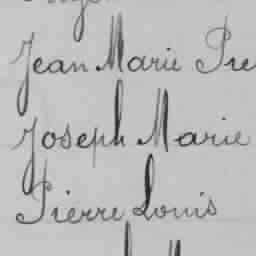 Jean Marie Pie
Joseph Marie
Pierre Louis